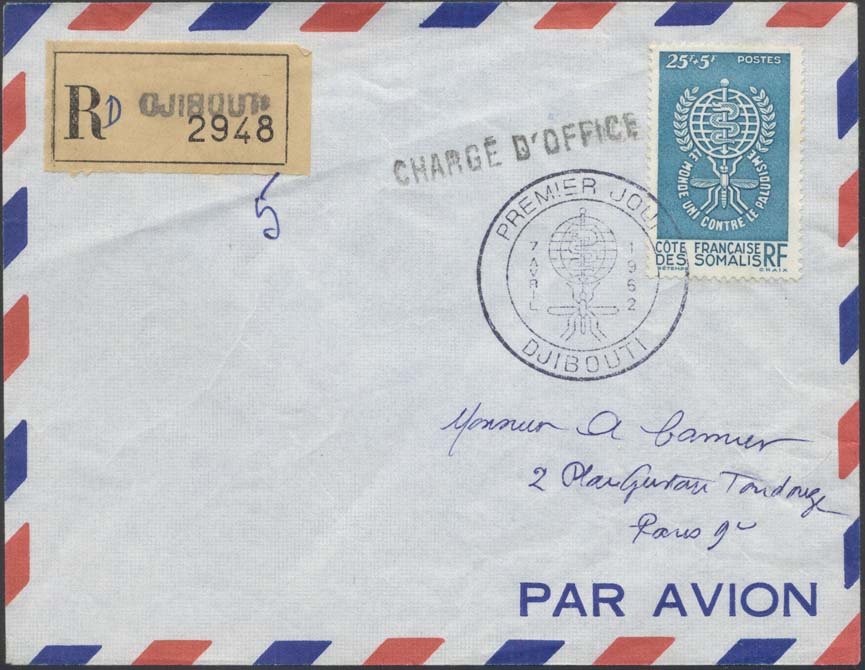 RD DJIBOUTI
2948
5
CHARGÉ D'OFFICE
25F+5F POSTES
LE MONDE UNI CONTRE LE PALUDISME
CÔTE FRANÇAISE
DES SOMALIS RF
BÉTEMPS CHAIX
PREMIER JOUR
7 AVRIL 1962
DJIBOUTI
Monsieur A
2 Place Gustave Toudouze
Paris 9e
PAR AVION